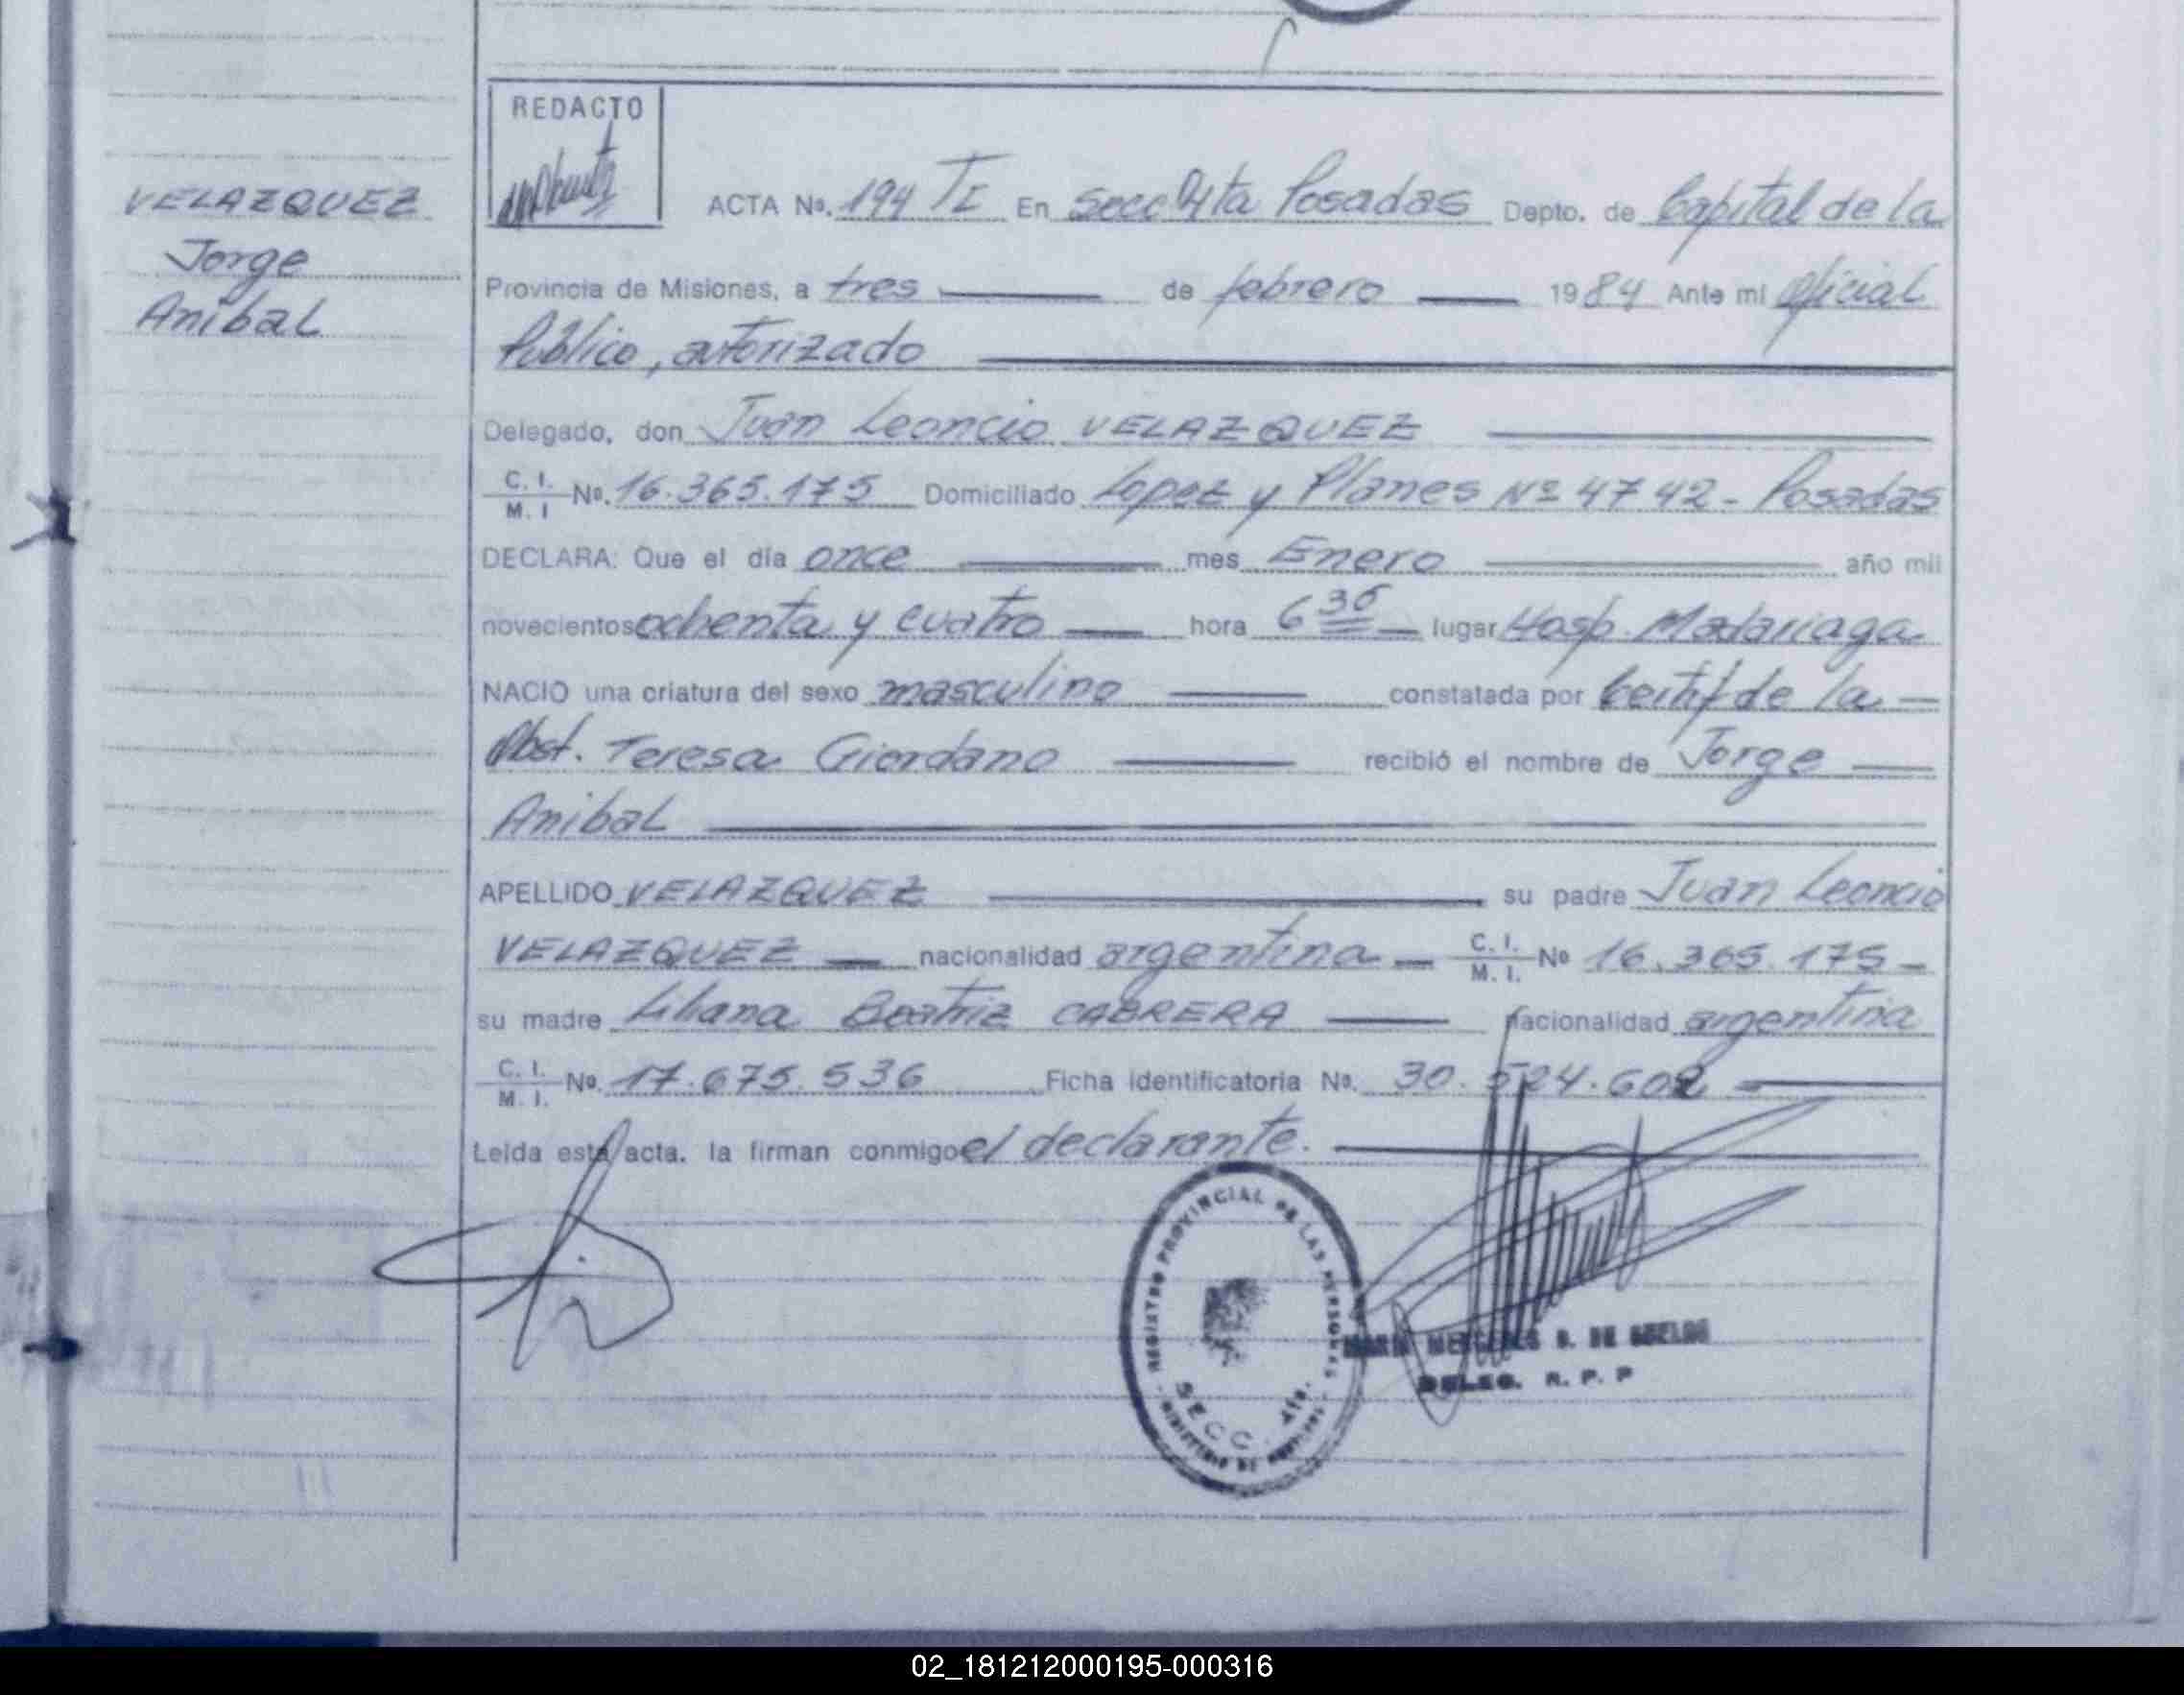 VELAZQUEZ
Jorge
Anibal
REDACTO
ACTA Nº. 194 TI En Secc 4ta Posadas Depto. de Capital de la
Provincia de Misiones, a tres de febrero 1984 Ante mi Oficial
Público, autorizado
Delegado, don Juan Leoncio VELAZQUEZ
C. I. M. I Nº. 16.365.175 Domiciliado Lopez y Planes Nº 4742 - Posadas
DECLARA: Que el día once mes Enero año mil
novecientos ochenta y cuatro hora 6 30 lugar Hosp. Madariaga
NACIO una criatura del sexo masculino constatada por Certif de la
Obst. Teresa Giordano recibió el nombre de Jorge
Anibal
APELLIDO VELAZQUEZ su padre Juan Leoncio
VELAZQUEZ nacionalidad argentina C. I. M. I. Nº 16.365.175 -
su madre Liliana Beatriz CABRERA nacionalidad argentina
C. I. M. I. Nº. 17.675.536 Ficha identificatoria Nº. 30.524.602
Leida esta acta. la firman conmigo el declarante.
REGISTRO PROVINCIAL DE LAS PERSONAS
SECC. 4ta.
MINISTERIO DE
S. DE
DELEG. R. P. P
02_181212000195-000316